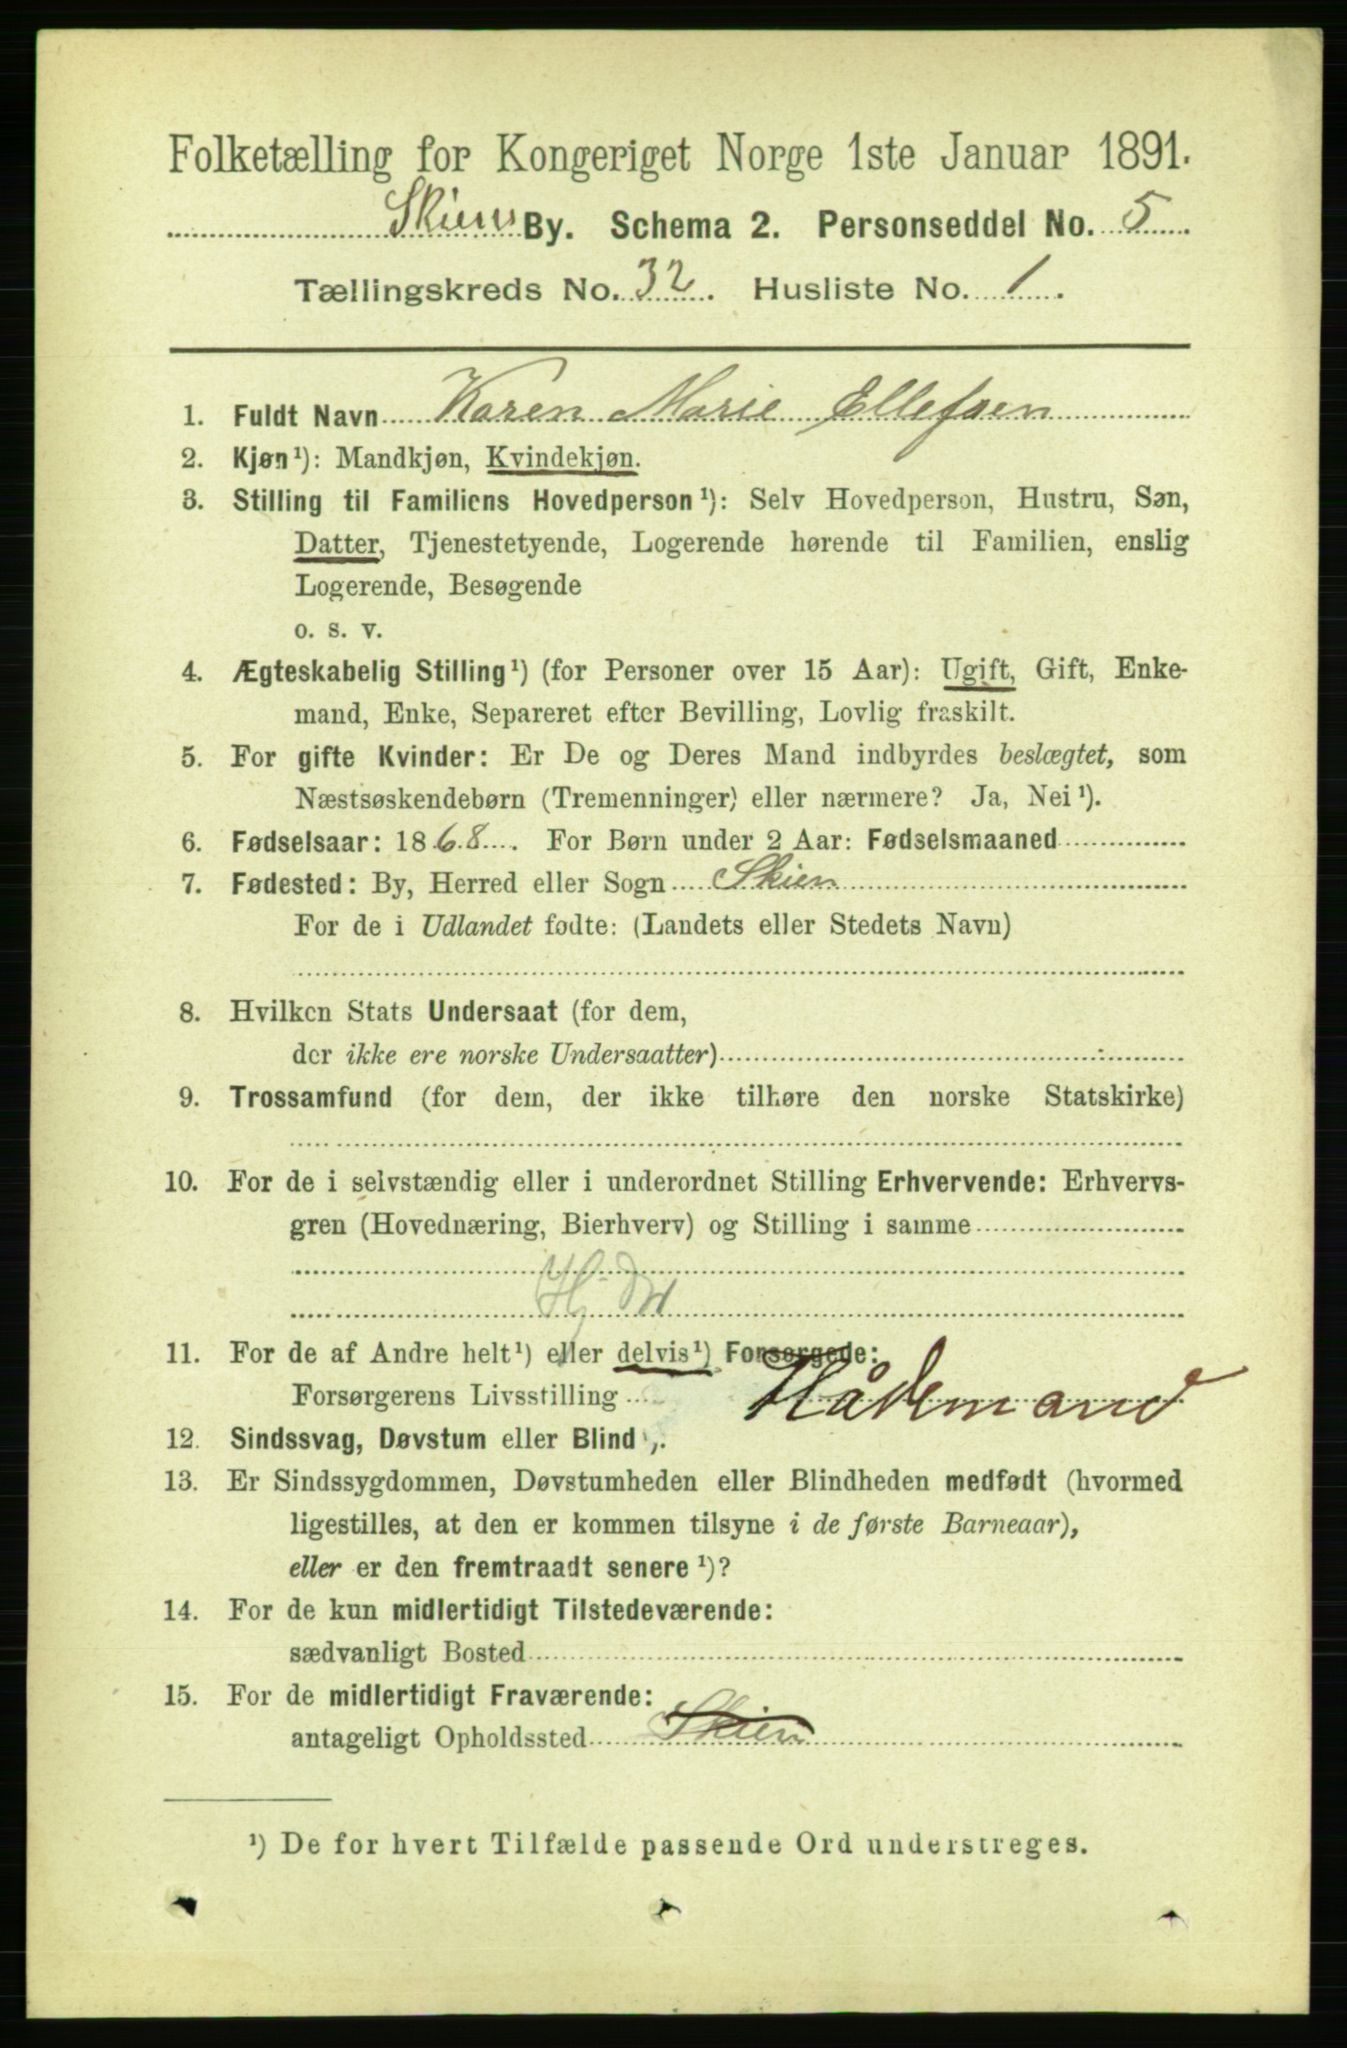 Folketælling for Kongeriget Norge 1ste Januar 1891.
Skiens By. Schema 2. Personseddel No. 5
Tællingskreds No. 32. Husliste No. 1.
1. Fuldt Navn Karen Marie Ellefsen
2. Kjøn¹): Mandkjøn, Kvindekjøn.
3. Stilling til Familiens Hovedperson¹): Selv Hovedperson, Hustru, Søn,
Datter, Tjenestetyende, Logerende hørende til Familien, enslig
Logerende, Besøgende
o. s. v.
4. Ægteskabelig Stilling¹) (for Personer over 15 Aar): Ugift, Gift, Enke-
mand, Enke, Separeret efter Bevilling, Lovlig fraskilt.
5. For gifte Kvinder: Er De og Deres Mand indbyrdes beslægtet, som
Næstsøskendebørn (Tremenninger) eller nærmere? Ja, Nei¹).
6. Fødselsaar: 1868. For Børn under 2 Aar: Fødselsmaaned
7. Fødested: By, Herred eller Sogn Skien
For de i Udlandet fødte: (Landets eller Stedets Navn)
8. Hvilken Stats Undersaat (for dem,
der ikke ere norske Undersaatter)
9. Trossamfund (for dem, der ikke tilhøre den norske Statskirke)
10. For de i selvstændig eller i underordnet Stilling Erhvervende: Erhvervs-
gren (Hovednæring, Bierhverv) og Stilling i samme
11. For de af Andre helt¹) eller delvis¹) Forsørgede:
Forsørgerens Livsstilling
12. Sindssvag, Døvstum eller Blind¹).
13. Er Sindssygdommen, Døvstumheden eller Blindheden medfødt (hvormed
ligestilles, at den er kommen tilsyne i de første Barneaar),
eller er den fremtraadt senere¹)?
14. For de kun midlertidigt Tilstedeværende:
sædvanligt Bosted
15. For de midlertidigt Fraværende:
antageligt Opholdssted Skien
¹) De for hvert Tilfælde passende Ord understreges.